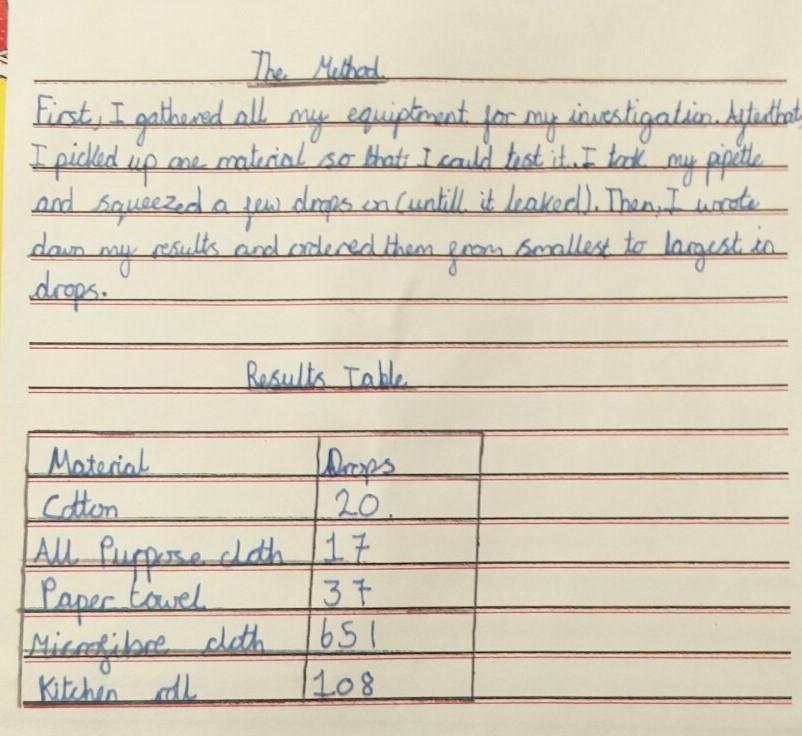 The Method.
First, I gathered all my equiptment for my investigation. After that
I picked up one material so that I could test it. I took my pipette
and squeezed a few drops on (untill it leaked). Then, I wrote
down my results and ordered them from smallest to largest in
drops.
Results Table
Material Drops
Cotton 20.
All Purpose cloth 17
Paper towel 37
Microfibre cloth 651
Kitchen roll 108